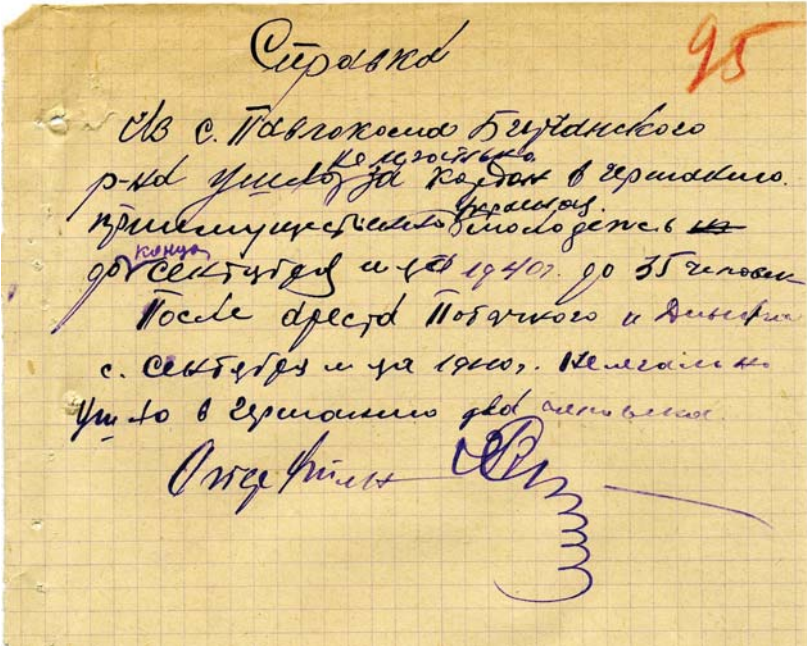 Справка
95
Из с. Павлокома Бирчанского
р-на ушло нелегально за кордон в германию.
преимущественно украинск. молодежь
до конца сентября м-ца 1940г. до 35 человек
После ареста Потачкого и
с. сентября м-ца 1940г. нелегально
ушло в германию два человека